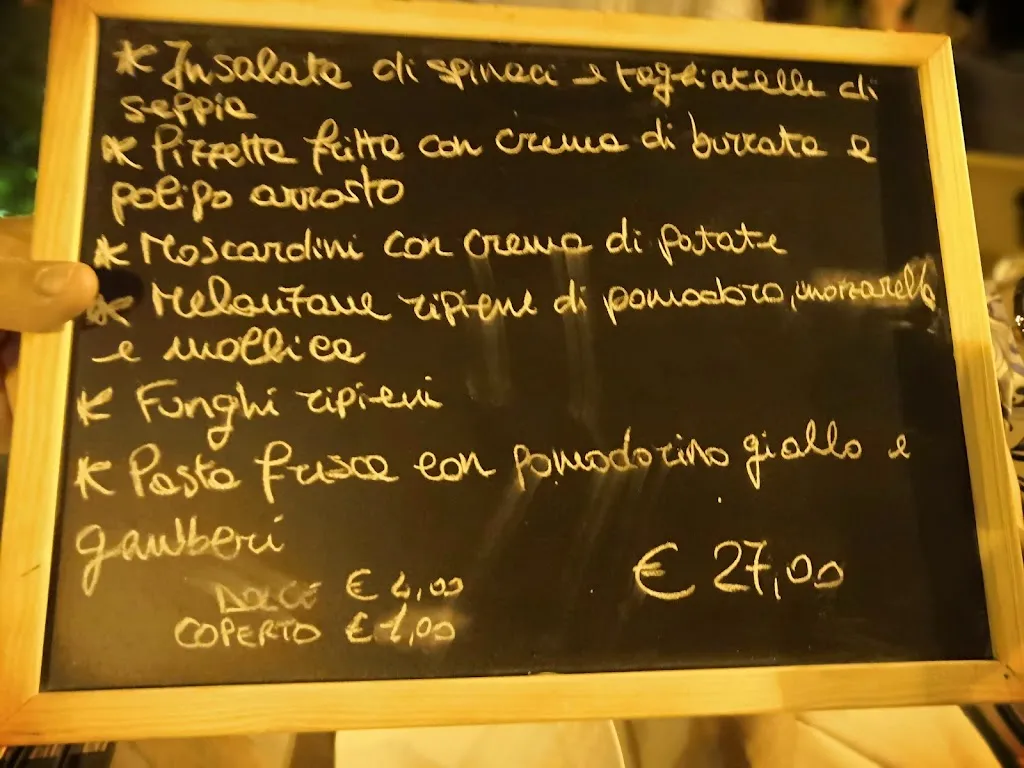 * Insalata di spinaci e tagliatelle di
seppia
* Pizzetta fritta con crema di burrata e
polipo arrosto
* Moscardini con crema di patate
* Melanzane ripiene di pomodoro, mozzarella
e mollica
* Funghi ripieni
* Pasta fresca con pomodorino giallo e
gamberi
€ 27,00
DOLCE € 4,00
COPERTO € 1,00